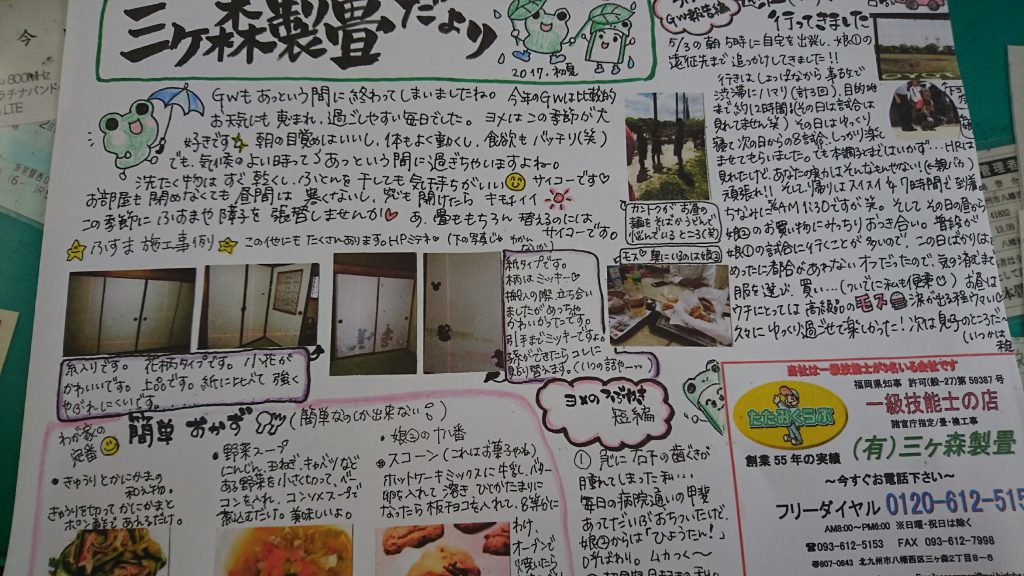 三ケ森製畳だより
2017.初夏
GWもあっという間に終わってしまいましたね。今年のGWは比較的
お天気にも恵まれ、過ごしやすい毎日でした。ヨメはこの季節が大
好きです 朝の目覚めはいいし、体もよく動くし、食欲もバッチリ(笑)
でも、気候のよい時って、あっという間に過ぎちゃいますよね。
洗たく物はすぐ乾くし、ふとんを干しても気持ちがいい サイコーです♡
お部屋も閉めなくても昼間は寒くないし、窓を開けたらキモチイイ
この季節にふすまや障子を張替しませんか♡ あ、畳ももちろん替えるのには
サイコーです。
ふすま施工事例 この他にもたくさんあります。HPミテネ♡ (下の写真じゃ
わかんないかい)
糸入りです。花柄タイプです。小花が
かわいいです。上品です。紙にくらべて強く
やぶれにくいです。
紙タイプです。
柄はミッキー♡
搬入の際、立ち合い
ましたがめっちゃ
かわいかったです。
引手までミッキーですよ。
孫ができたらコレに
貼り替えます。(いつの話やー…)
GW報告編
行ってきました
5/3の朝5時に自宅を出発し、娘①の
遠征先まで追っかけしてきました!!
行きはしょっぱなから事故で
渋滞にハマリ(計3回)、目的地
まで約12時間!(その日は試合は
見れてません笑) その日はゆっくり
寝て次の日からの8試合、しっかり楽し
ませてもらいました。でも本調子とまではいかず…HRは
見れたけど、あなたの実力はそんなもんやない!(←親バカ)
頑張れ!! そして帰りはスイスイ 7時間で到着
ちなみにAM1:30ですが笑。そして その日の昼から
娘②のお買い物にみっちりおつき合い。普段が
娘①の試合に行くことが多いので、この日ばかりは
めったに都合があわないオフだったので、気の済むまで
服を選び、買い…(ついでに私も(便乗)) お昼は
ウチにとっては高級品のモス 涙が出る程ウマい
久々にゆっくり過ごせて楽しかった!次は息子のところだ
カントクが、お昼の
麺をそばかうどんで
悩んでいるところ(笑)
モス♡ 奥にいるのは娘②
わが家の
定番
簡単おかず (簡単なのしか出来ない)
・きゅうりとかにかまの
和え物。
きゅうりを切ってかにかまと
ポン酢であえるだけ。
・野菜スープ
にんじん、玉ねぎ、キャベツなど
ある野菜を小さく切って、ベー
コンを入れ、コンソメスープで
煮込むだけ。美味しいよ。
・娘②の十八番
スコーン(これはお菓子やね)
ホットケーキミックスに牛乳、バター
卵を入れて混ぜ、ひとかたまりに
なったら板チョコを入れ、8等分に
わけ、
オーブンで
焼いたら
ヨメのつぶやき
短編
① 急に右下の歯ぐきが
腫れてしまった私…
毎日の病院通いの甲斐
あってだいぶおちついたけど、
娘②からは「ひょうたん!」
呼ばわり。ムカつくー
当社は一級技能士が3名いる会社です
福岡県知事 許可(般-27)第59387号
一級技能士の店
諸官庁指定/畳・襖工事
たたみくヨホ
創業55年の実績
(有)三ヶ森製畳
～今すぐお電話下さい～
フリーダイヤル 0120-612-515
AM8:00～PM6:00 ※日曜・祝日は除く
☎093-612-5153 FAX 093-612-7998
〒807-0843 北九州市八幡西区三ヶ森2丁目8-6
800MHz
ラチナバンド
LTE